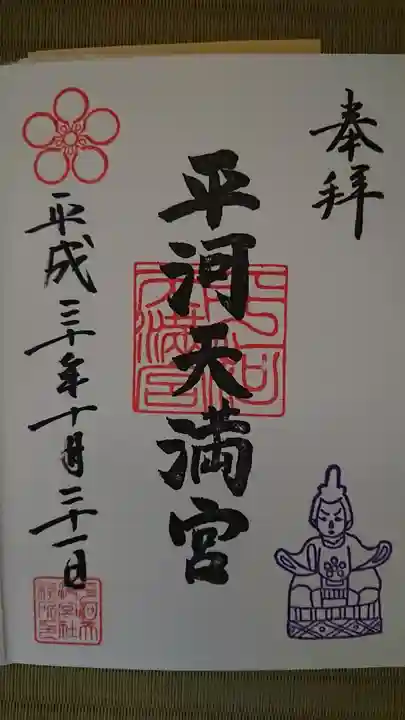 奉拝
平河天満宮
平成三十年十月三十一日